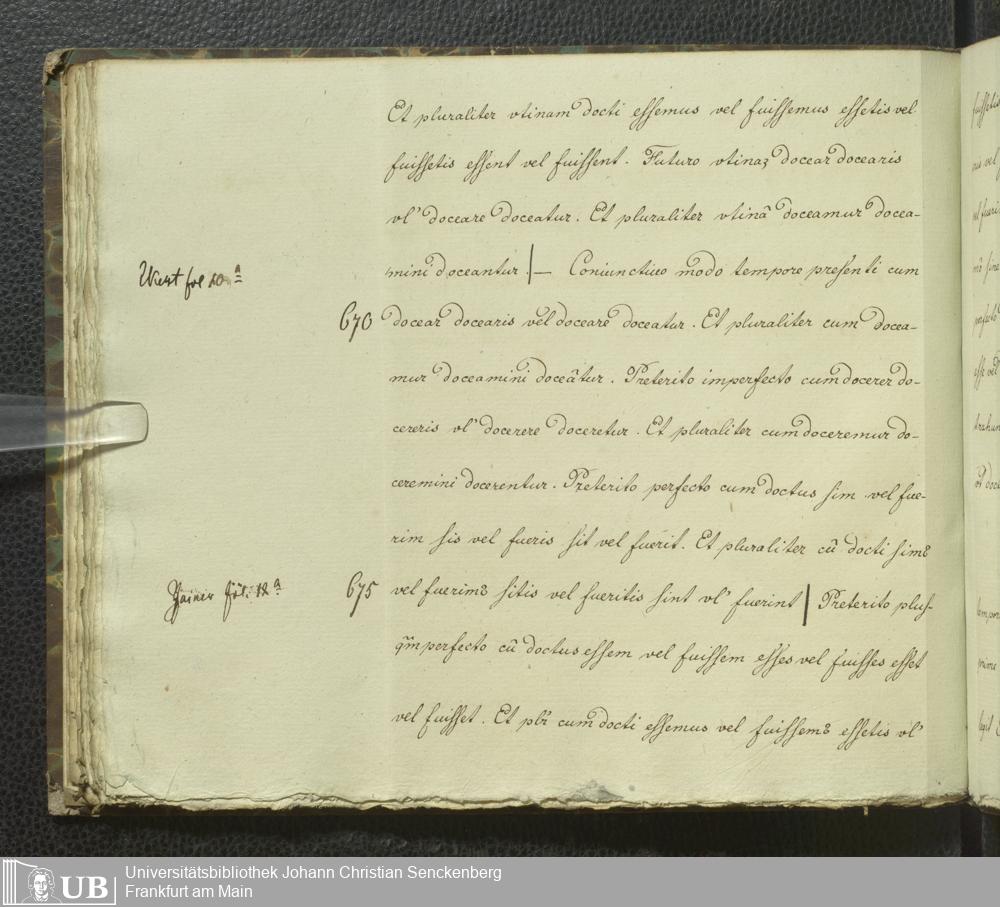 Et pluraliter vtinam docti essemus vel fuissemus essetis vel
fuissetis essent vel fuissent. Futuro vtinaʒ docear docearis
vl' doceare doceatur. Et pluraliter vtinā doceamur docea-
mini doceantur |— Coniunctiuo modo tempore presenti cum
fol 10 a
670 docear docearis vel doceare doceatur. Et pluraliter cum docea-
mur doceamini doceātur. Preterito imperfecto cum docerer do-
cereris vl' docerere doceretur. Et pluraliter cum doceremur do-
ceremini docerentur. Preterito perfecto cum doctus sim vel fue-
rim sis vel fueris sit vel fuerit. Et pluraliter cū docti simꝰ
Zainer fol. 12 a
675 vel fuerimꝰ sitis vel fueritis sint vl' fuerint | Preterito plus-
qm̄perfecto cū doctus essem vel fuissem esses vel fuisses esset
vel fuisset. Et plr̄ cum docti essemus vel fuissemꝰ essetis vl'
UB
Universitätsbibliothek Johann Christian Senckenberg
Frankfurt am Main